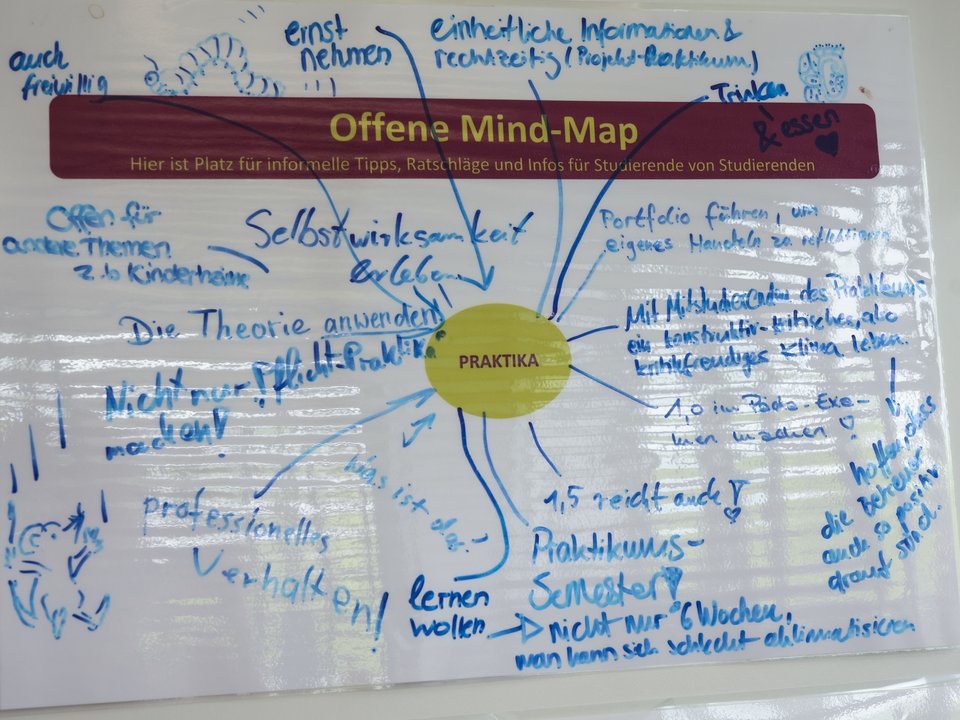 auch
freiwillig
ernst
nehmen
einheitliche Informationen &
rechtzeitig (Projekt-Praktikum)
Trinken
& essen
Offene Mind-Map
Hier ist Platz für informelle Tipps, Ratschläge und Infos für Studierende von Studierenden
Offen für
andere Themen
z.b Kinderheime
Selbstwirksamkeit
erleben
Portfolio führen, um
eigenes Handeln zu reflektieren
Die Theorie anwenden!
Mit Mitstudierenden des Praktikums
ein konstruktiv-kritisches, also
kritikfreudiges Klima leben.
PRAKTIKA
Nicht nur Pflicht-Praktika
machen!
1,0 im Päda-Exa-
men machen
hoffen, dass
die Betreuer
auch so positiv
drauf sind.
was ist das?
1,5 reicht auch!
professionelles
Verhalten!
Praktikums-
Semester!
lernen
wollen
nicht nur 6 Wochen,
man kann sich schlecht aklimatisieren